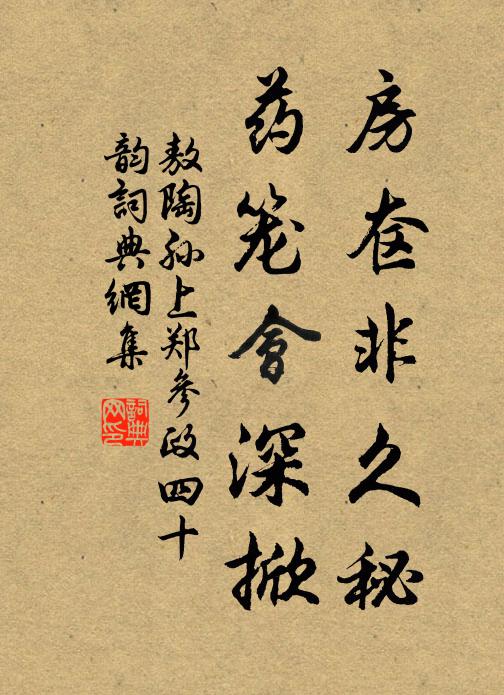 房奁非久秘
药笼會深掀
敖陶孙上郑参政四十
韵詞典網集
詞典
网印